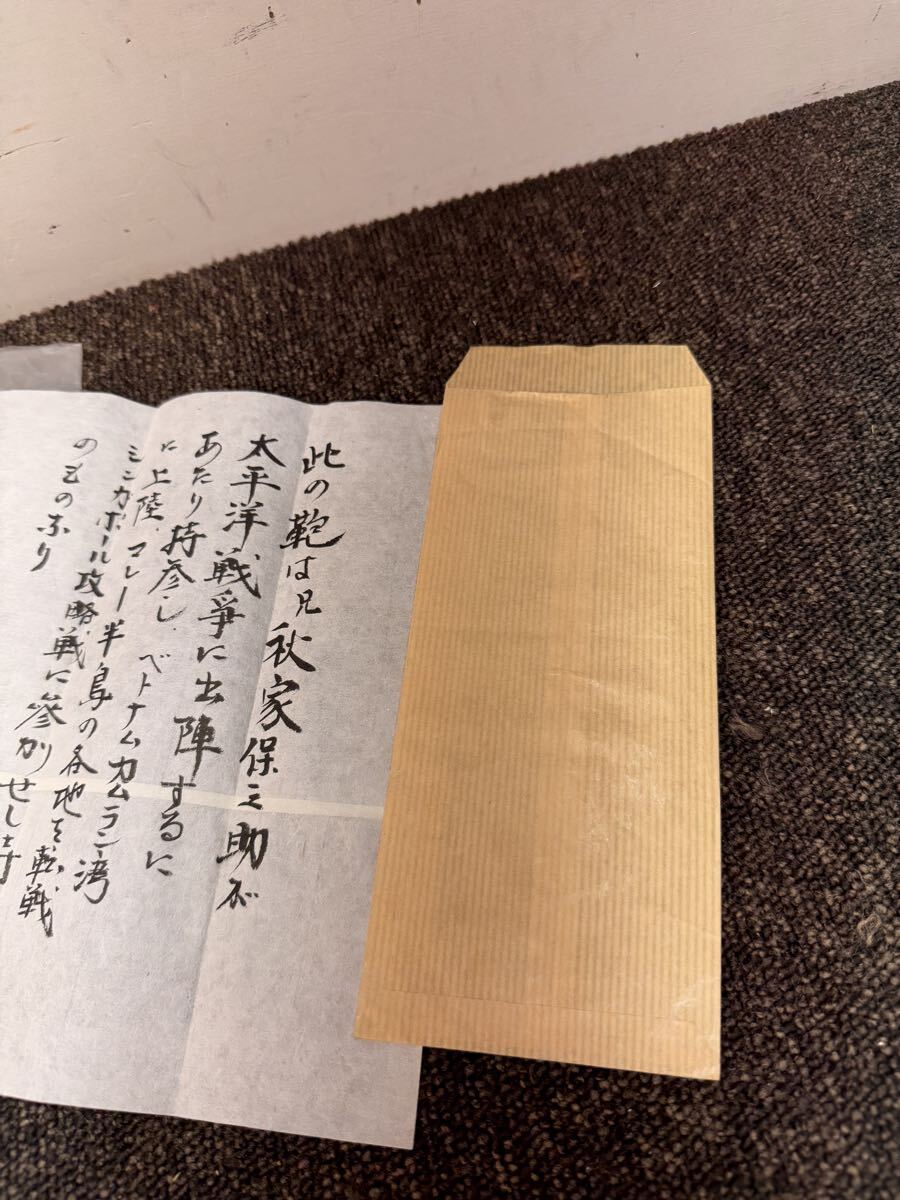 此の鞄は兄秋家保之助が
太平洋戦爭に出陣するに
あたり持参し、ベトナムカムラン湾
に上陸、マレー半島の各地を転戦
シンガポール攻略戦に参加せし時
のものなり